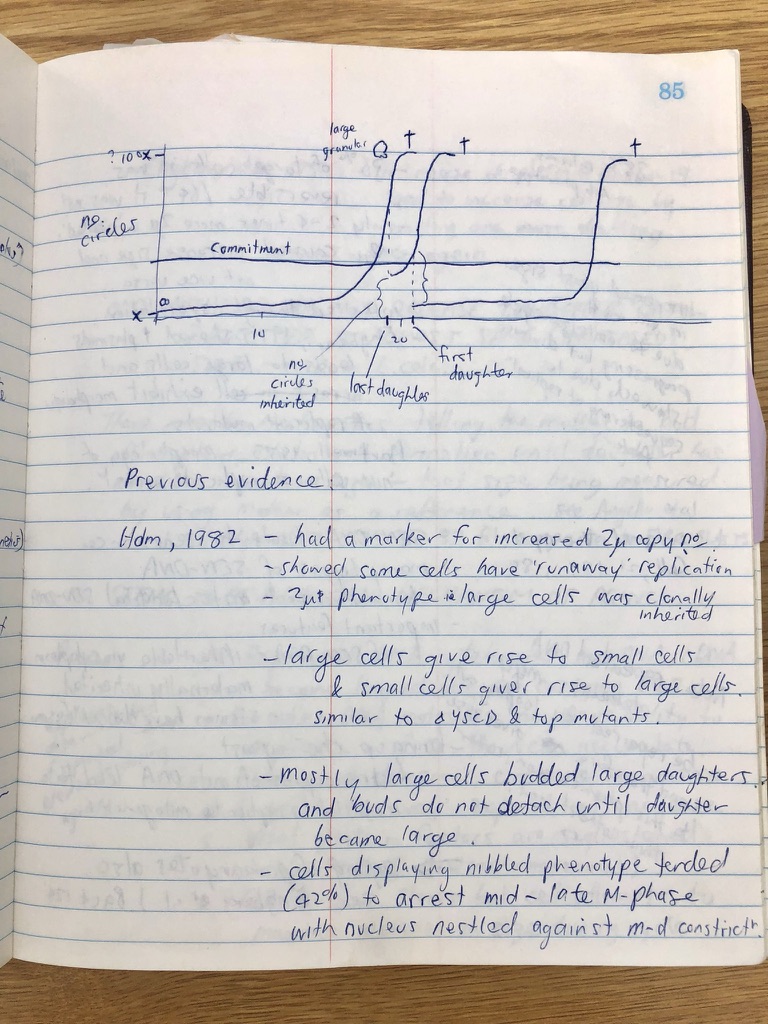 85
large
granular
? 100x
no.
circles
Commitment
x
10
20
no.
circles
inherited
last daughter
first
daughter
Previous evidence:
Holm, 1982 - had a marker for increased 2μ copy no.
- showed some cells have 'runaway' replication
- 2μ+ phenotype large cells was clonally
inherited
- large cells give rise to small cells
& small cells giver rise to large cells.
similar to & top mutants.
- mostly large cells budded large daughters.
and buds do not detach until daughter
became large.
- cells displaying nibbled phenotype tended
(42%) to arrest mid-late M-phase
with nucleus nestled against m-d constrictn.